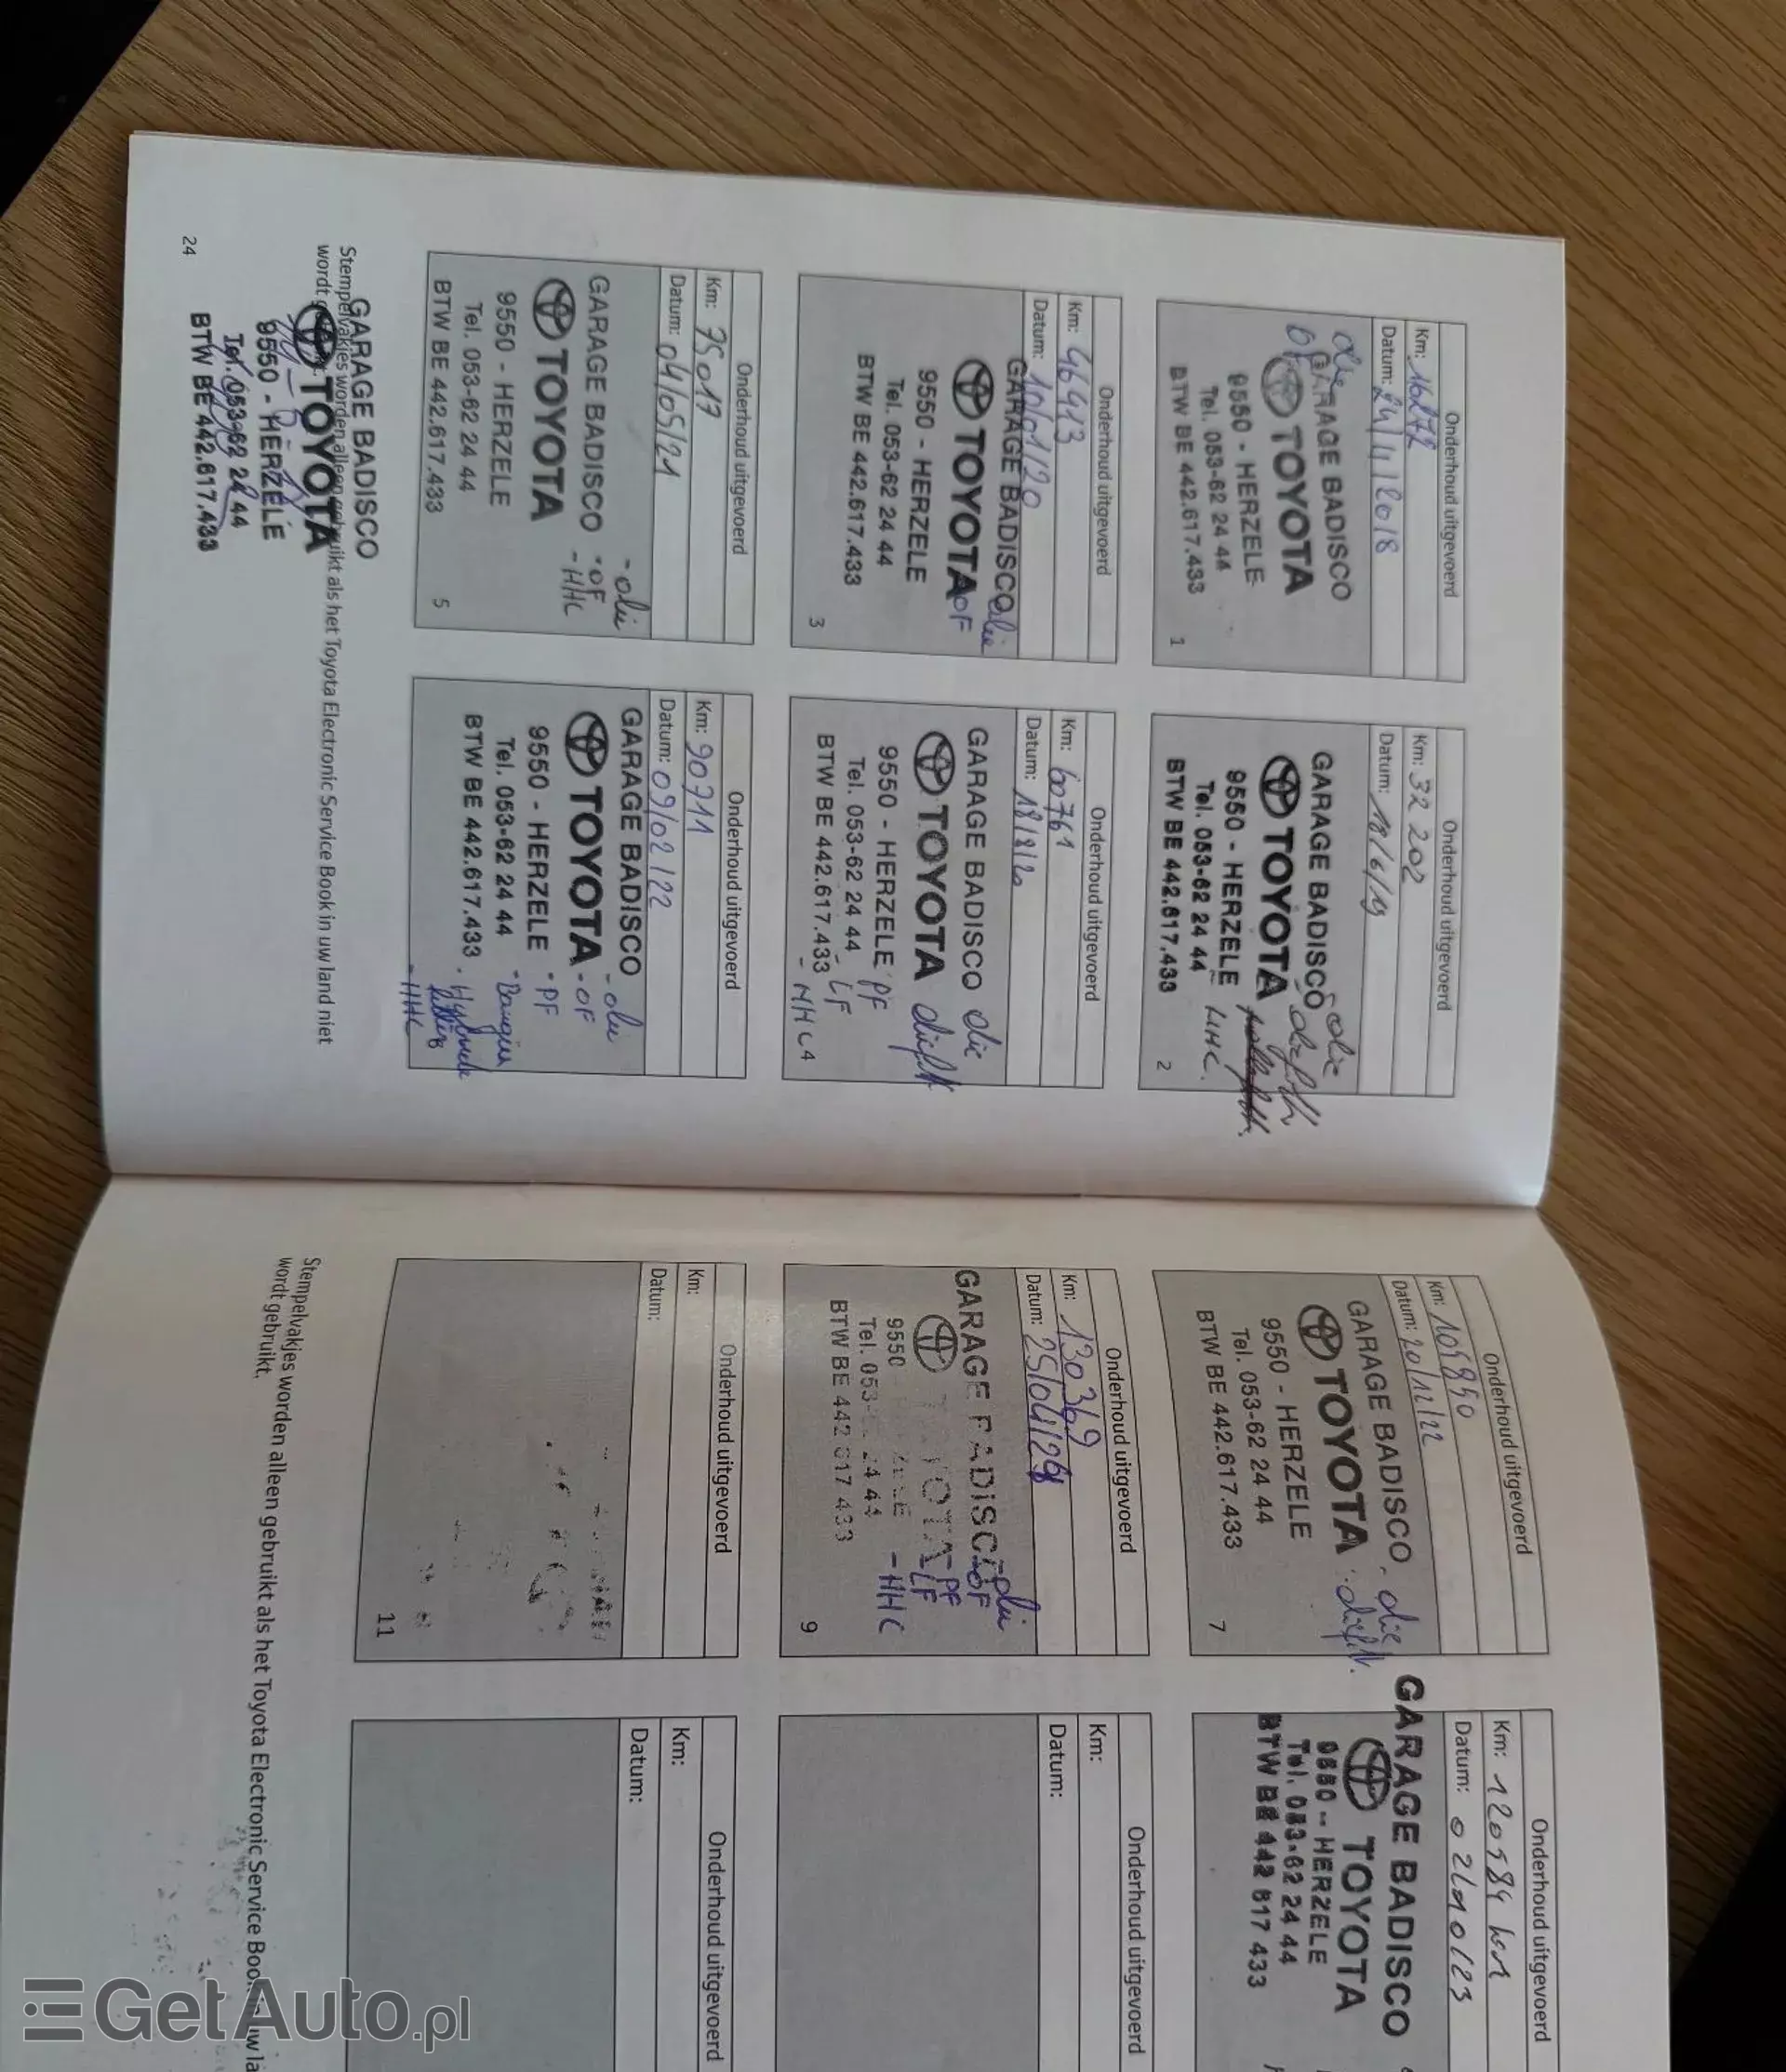 Onderhoud uitgevoerd
Km: 16272
Datum: 24/11/2018
olie
OF
GARAGE BADISCO
TOYOTA
9550 - HERZELE
Tel. 053-62 24 44
BTW BE 442.617.433
1
Onderhoud uitgevoerd
Km: 32 202
Datum: 18/6/19
GARAGE BADISCO olie
TOYOTA oliefilth
9550 - HERZELE
Tel. 053-62 24 44 HHC.
BTW BE 442.617.433
2
Onderhoud uitgevoerd
Km: 46413
Datum: 10/01/20
GARAGE BADISCO olie
TOYOTA OF
9550 - HERZELE
Tel. 053-62 24 44
BTW BE 442.617.433
3
Onderhoud uitgevoerd
Km: 60761
Datum: 18/8/20
GARAGE BADISCO olie
TOYOTA oliefilt
9550 - HERZELE PF
Tel. 053-62 24 44 - LF
BTW BE 442.617.433 - HHC
4
Onderhoud uitgevoerd
Km: 75017
Datum: 04/05/21
- olie
GARAGE BADISCO - OF
TOYOTA - HHC
9550 - HERZELE
Tel. 053-62 24 44
BTW BE 442.617.433
5
Onderhoud uitgevoerd
Km: 90711
Datum: 09/02/22
GARAGE BADISCO - olie
TOYOTA - OF
9550 - HERZELE - PF
Tel. 053-62 24 44
BTW BE 442.617.433
- HHC
GARAGE BADISCO
Stempelvakjes worden alleen gebruikt als het Toyota Electronic Service Book in uw land niet
wordt
TOYOTA
9550 - HERZELE
Tel. 053-62 24 44
BTW BE 442.617.433
24
Onderhoud uitgevoerd
Km: 105850
Datum: 20/12/22
GARAGE BADISCO - olie
TOYOTA - oliefilt.
9550 - HERZELE
Tel. 053-62 24 44
BTW BE 442.617.433
7
Onderhoud uitgevoerd
Km: 120584 km
Datum: 02/10/23
GARAGE BADISCO
TOYOTA
9550 - HERZELE
Tel. 053-62 24 44
BTW BE 442 617 433
Onderhoud uitgevoerd
Km: 130369
Datum: 25/04/24
GARAGE BADISCO - olie
- OF
TOYOTA - PF
- LF
9550 - HHC
Tel. 053- 24 44
BTW BE 442 617 433
9
Onderhoud uitgevoerd
Km:
Datum:
Onderhoud uitgevoerd
Km:
Datum:
11
Onderhoud uitgevoerd
Km:
Datum:
Stempelvakjes worden alleen gebruikt als het Toyota Electronic Service Book in uw la
wordt gebruikt.
GetAuto.pl